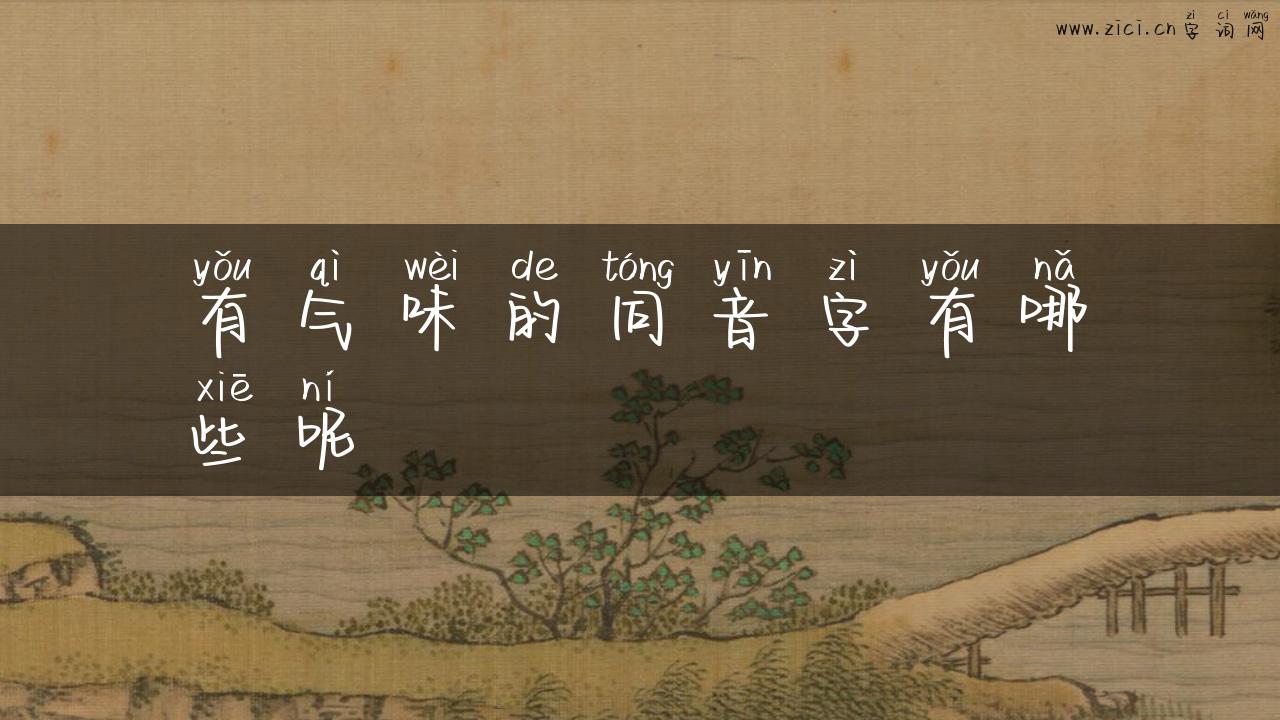 zì cí wǎng
www.zici.cn 字词网
yǒu qì wèi de tóng yīn zì yǒu nǎ
有气味的同音字有哪
xiē ní
些呢